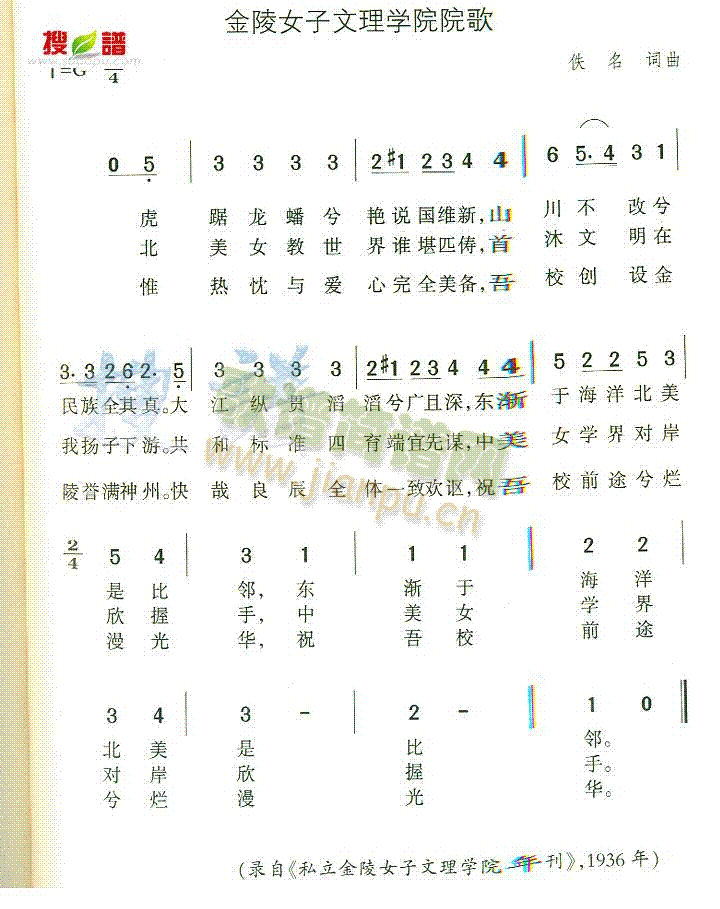 金陵女子文理学院院歌
搜 譜
www.sooopu.com
1=G 4
佚 名 词曲
0 5 | 3 3 3 3 | 2 #1 2 3 4 4 | 6 5. 4 3 1
虎 踞龙蟠兮 艳说国维新,山 川不改兮
北 美女教世 界谁堪匹俦,首 沐文明在
惟 热忱与爱 心完全美备,吾 校创设金
3. 3 2 6 2. 5 | 3 3 3 3 | 2 #1 2 3 4 4 4 | 5 2 2 5 3
民族全其真。大 江纵贯滔 滔兮广且深,东渐 于海洋北美
我扬子下游。共 和标准四 育端宜先谋,中美 女学界对岸
陵誉满神州。快 哉良辰全 体一致欢讴,祝吾 校前途兮烂
歌谱简谱网
www.jianpu.cn
2/4 5 4 | 3 1 | 1 1 | 2 2
是比 邻,东 渐于 海洋
欣握 手,中 美女 学界
漫光 华,祝 吾校 前途
3 4 | 3 - | 2 - | 1 0
北美 是 比 邻。
对岸 欣 握 手。
兮烂 漫 光 华。
(录自《私立金陵女子文理学院年刊》,1936年)